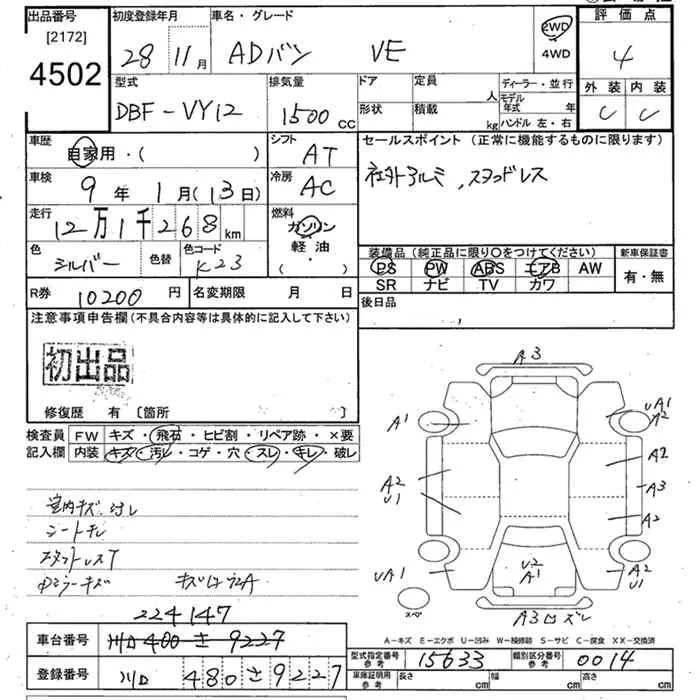 出品番号
[2172]
4502
初度登録年月
28 11月
車名・グレード
ADバン VE
2WD
4WD
評価点
4
外装 内装
C C
型式
DBF-VY12
排気量
1500 CC
ドア 定員 人
形状 積載 kg
ディーラー・並行
モデル年式 年
ハンドル 左・右
車歴
自家用・( )
シフト
AT
車検
9年 1月(13日)
冷房
AC
走行
12万1千268km
燃料
ガソリン
軽油
( ・ )
色
シルバー
色替
色コード
K23
セールスポイント (正常に機能するものに限ります)
社外アルミ、スタッドレス
装備品 (純正品に限り○をつけてください)
PS PW ABS エアB AW
SR ナビ TV カワ
新車保証書
有・無
R券 10200 円
名変期限 月 日
後日品
注意事項申告欄(不具合内容等は具体的に記入して下さい)
初出品
修復歴 有 [箇所 ]
検査員記入欄
FW キズ・飛石・ヒビ割・リペア跡・×要
内装 キズ・汚レ・コゲ・穴・スレ・キレ・破レ
室内キズ、汚レ
シートキレ
スタットレスT
224147
車台番号 川口400さ9227
登録番号 川口 480さ9227
A3
A1
UA1
A2
A2
U1
A2
A3
A2
UA1
U2
A1
A2
U1
A3ロズレ
スペア
A-キズ E-エクボ U-凹み W-補修跡 S-サビ C-腐食 XX-交換済
型式指定番号 参考 15633
類別区分番号 参考 0014
車庫証明用 参考 長さ cm 幅 cm 高さ cm